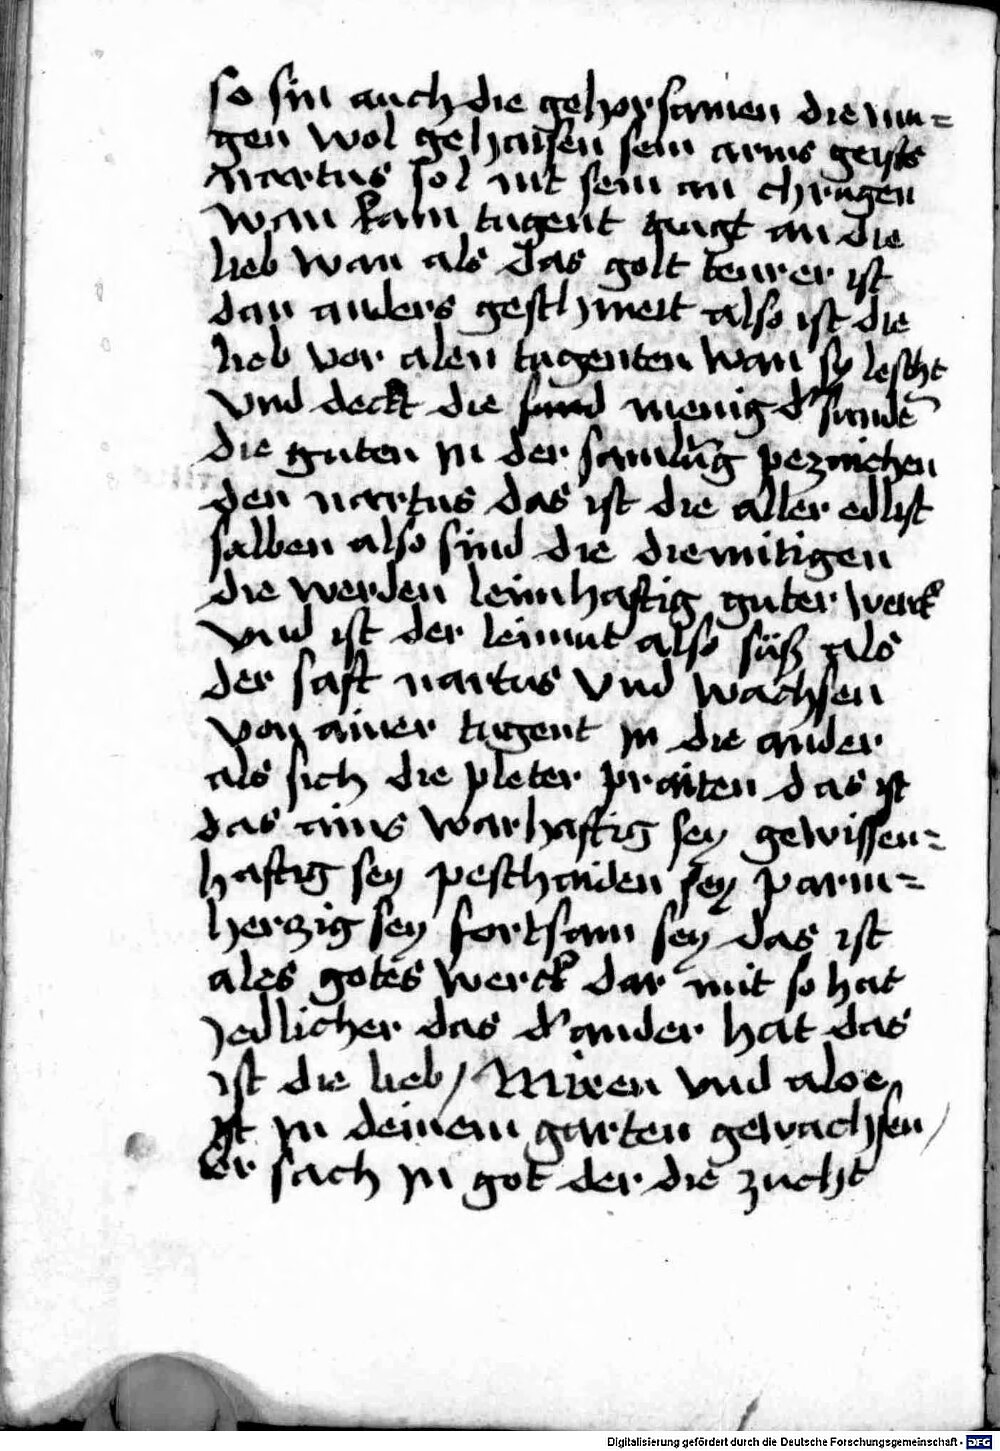 so sin auch die gehorsamen die mu=
gen wol gehaisen sein arms geists
nartus sol nit sein an chrugen
wan kain tugent gugt an die
lieb wan als das golt teurer ist
dan anders gesthmeit also ist die
lieb vor alen tugenten wan sy lescht
vnd deckt die sund menig d' sunde
die guten in der samlūg pezaichen
den nartus das ist die aller edlist
salben also sind die diemitigen
die werden leimhaftig guter werck
vnd ist der leimut also süß als
der saft nartus vnd wachsen
von ainer tugent in die ander
als sich die pleter praiten das ist
das ains warhaftig sey gewissen=
haftig sey pesthaiden sey parm=
herzig sey fortsam sey das ist
ales gotes werck dar mit so hat
jedlicher das d' ander hat das
ist die lieb / Mirren vnd aloe
ist in deinem garten gewachsen /
er sach in got der die zucht
Digitalisierung gefördert durch die Deutsche Forschungsgemeinschaft - DFG